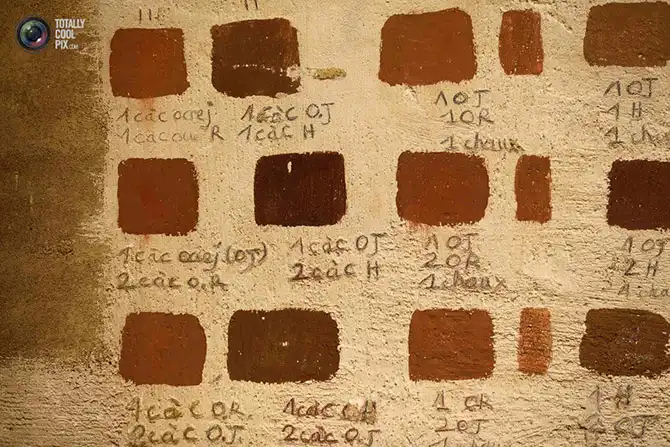 TOTALLY
COOL
PIX
.COM
1 càc ocrej
1 càc ocre R
1 càc O.J
1 càc H
1 OJ
1 OR
1 chaux
1 OJ
1 H
1 ch
1 càc ocrej (OJ)
2 càc O.R
1 càc OJ
2 càc H
1 OJ
2 OR
1 chaux
1 OJ
2 H
1 cha
1 càc O.R.
2 càc O.J.
1 càc H
2 càc O.J
1 OR
2 OJ
1 H
2 OJ